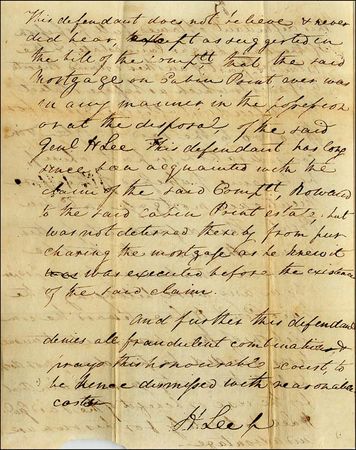 This defendant does not believe & never
did hear, except as suggested in
the bill of the Complt that the said
Mortgage on Cabin Point ever was
in any manner in the possession
or at the disposal, of the said
Genl H Lee This defendant has long
since been acquainted with the
claim of the said Complt, Howard
to the said Cabin Point estate, but
was not deterred thereby from pur
chasing the mortgage as he knew it
was was executed before the existence
of the said claim.
And further this defendant
denies all fraudulent combination &
prays this honourable court to
be hence dismissed with reasonable
costs
H Lee